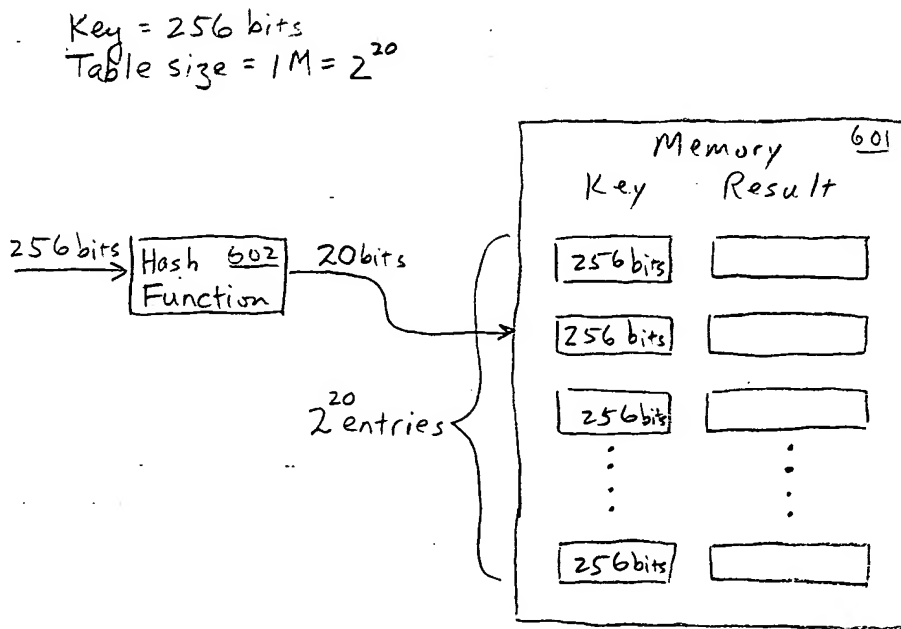 Key = 256 bits
Table size = 1M = 2^20
Memory 601
Key Result
256 bits
Hash 602
Function
20 bits
256 bits
256 bits
256 bits
2^20 entries
256 bits